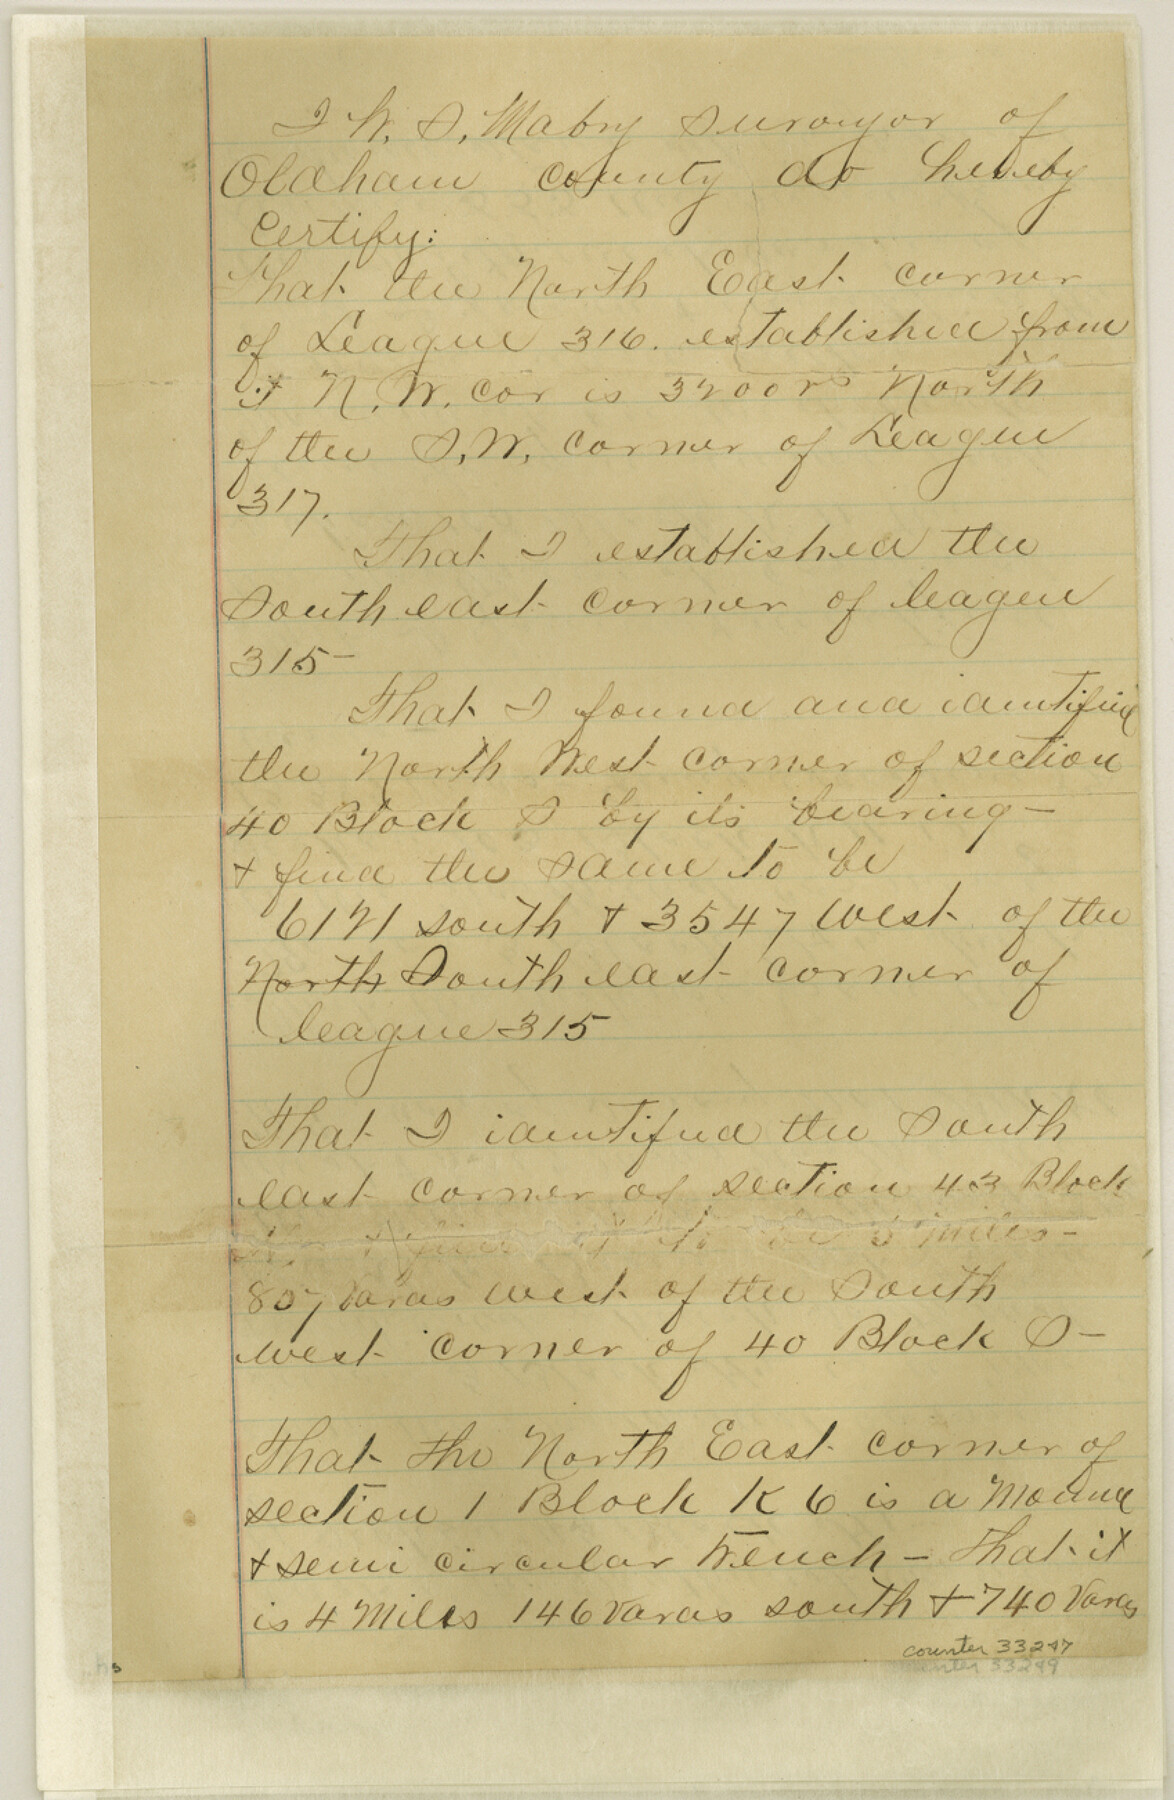 I W. S. Mabry Surveyor of
Oldham County do hereby
Certify:
That the North East corner
of League 316. established from
it N. W. cor is 3200 vrs North
of the S. W. corner of League
317.
That I established the
South east corner of leageu
315-
That I found and identified
the North West corner of section
40 Block S by its bearing-
+ find the same to be
6121 south + 3547 west of the
North South east corner of
league 315
That I identified the South
east corner of section 43 Block
+ find it to be 3 miles-
857 Varas west of the South
west corner of 40 Block S-
That the North East corner of
section 1 Block K 6 is a Mound
+ semi circular trench - That it
is 4 Miles 146 Varas south + 740 Varas
counter 33247
counter 33249